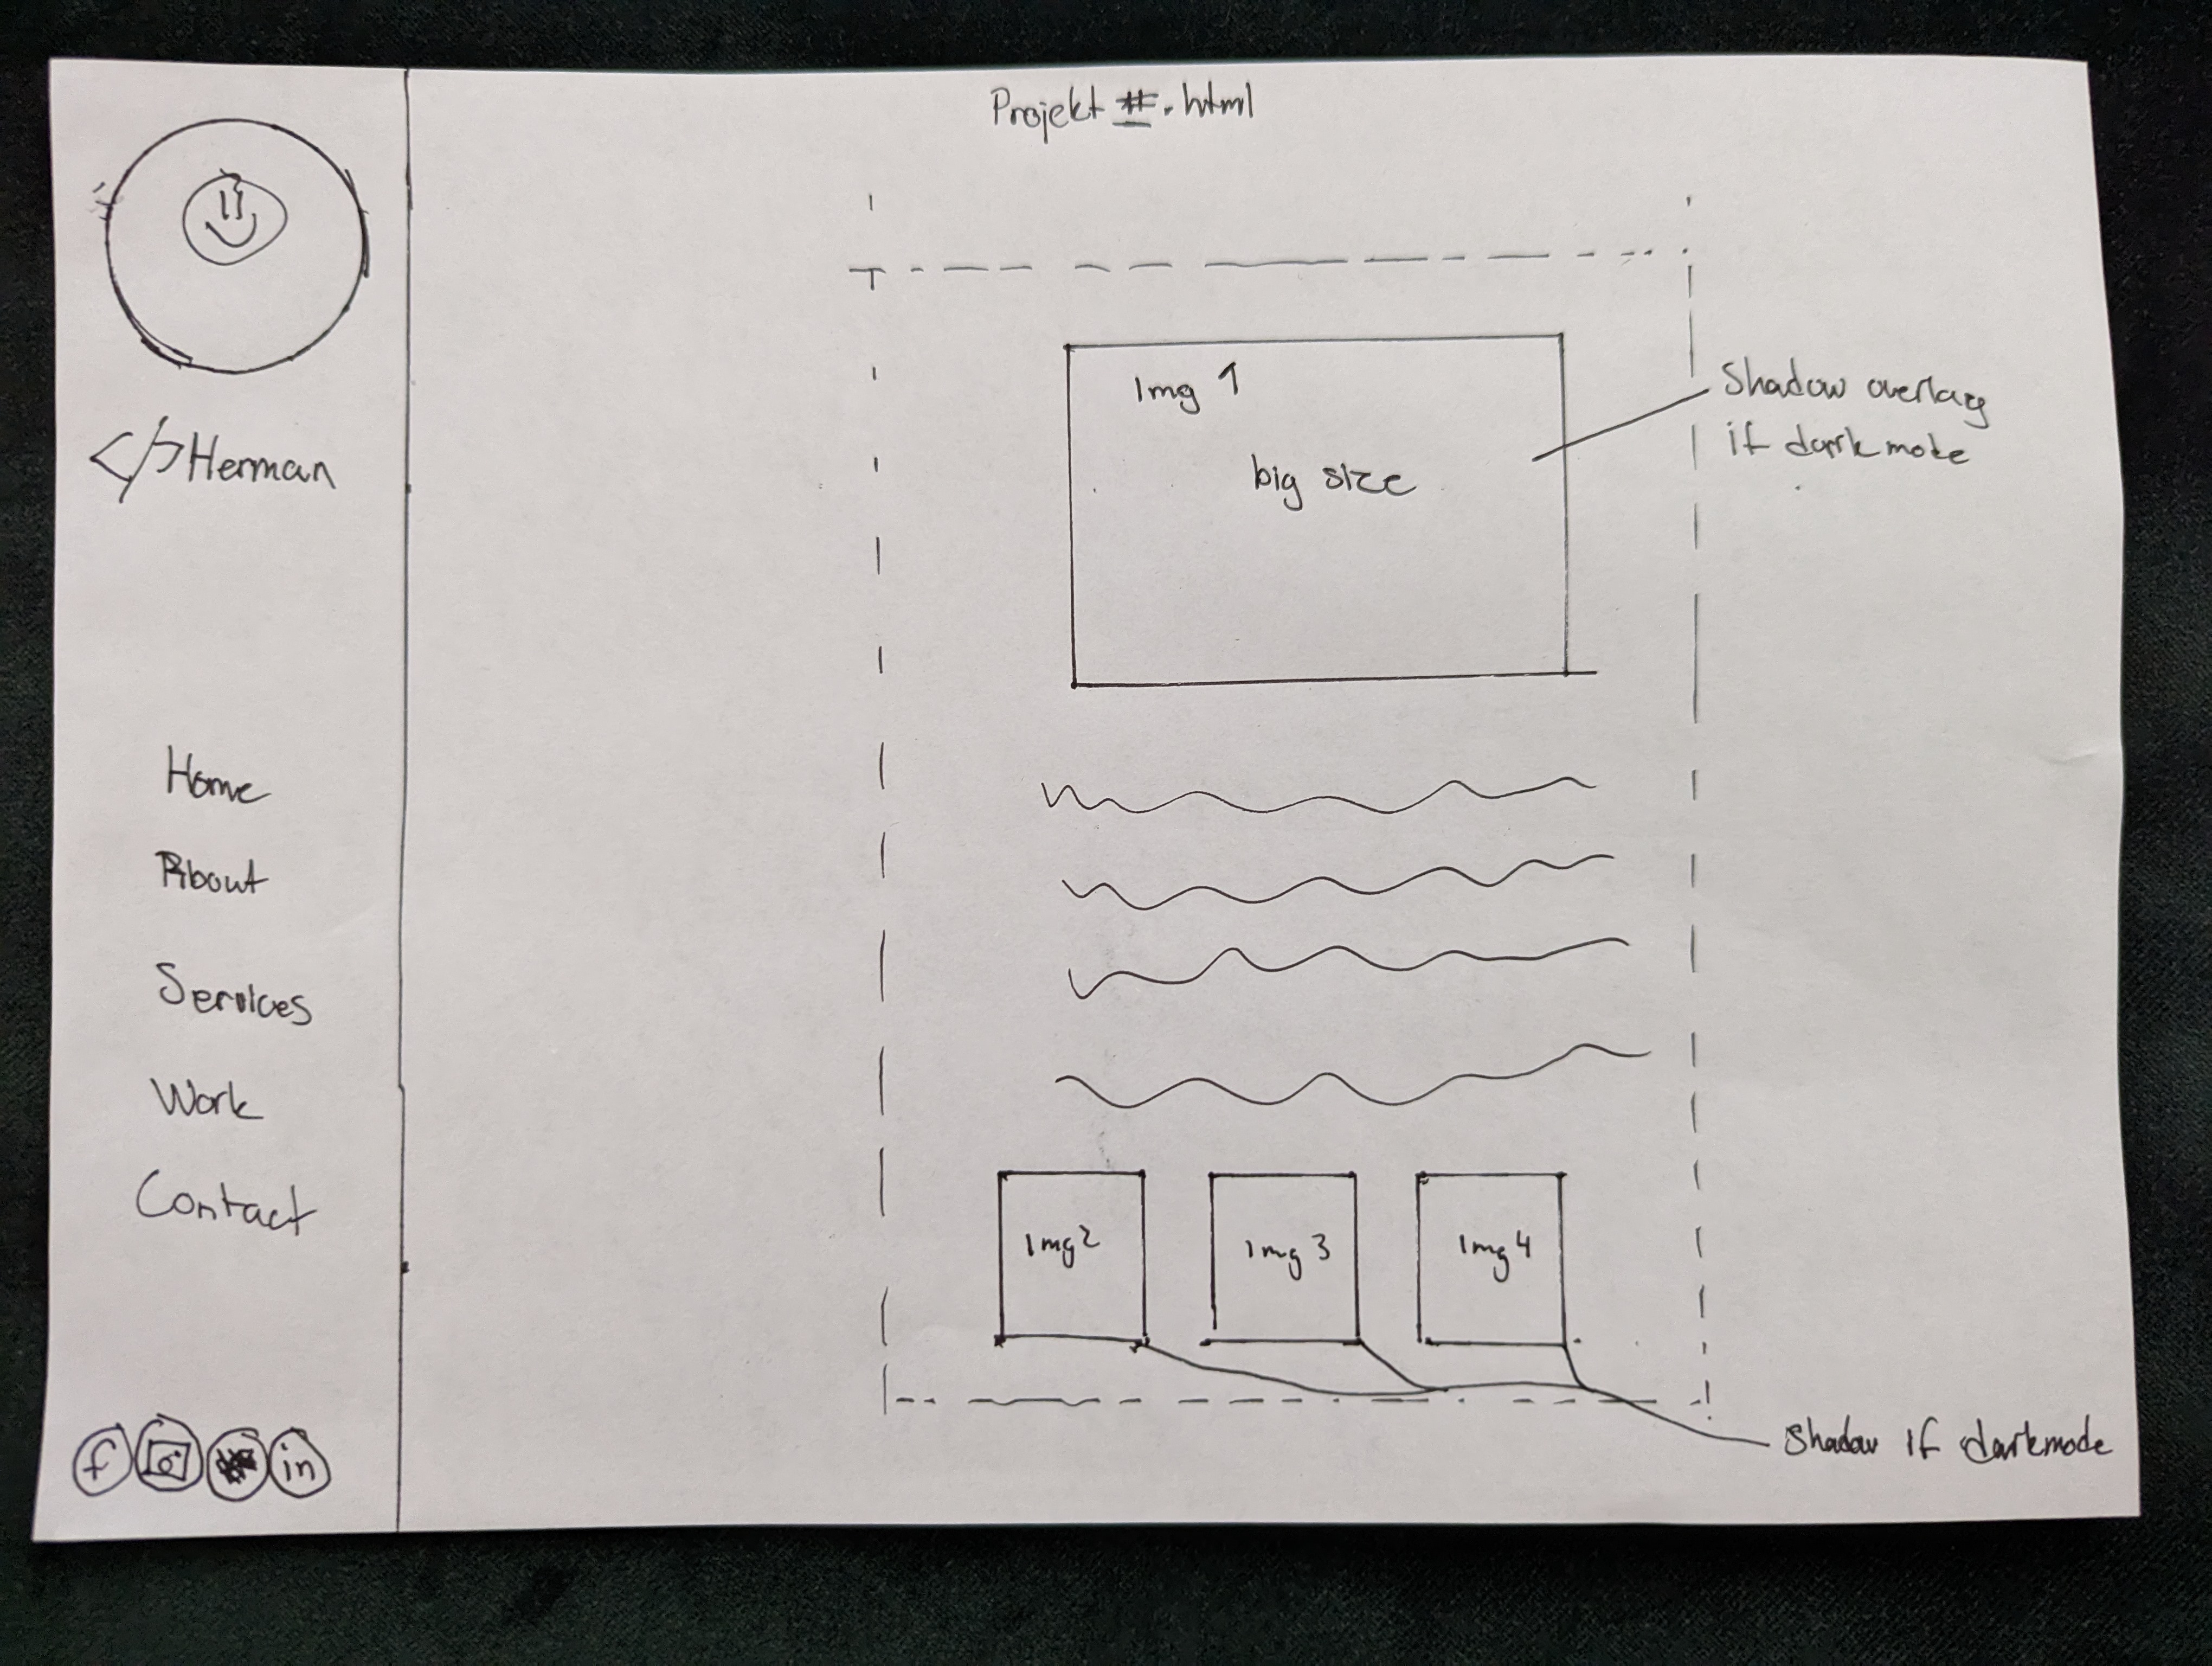 Projekt #.html
</>Herman
Home
About
Services
Work
Contact
f
in
Img 1
big size
Shadow overlay
if darkmode
Img2
Img 3
Img 4
Shadow if darkmode